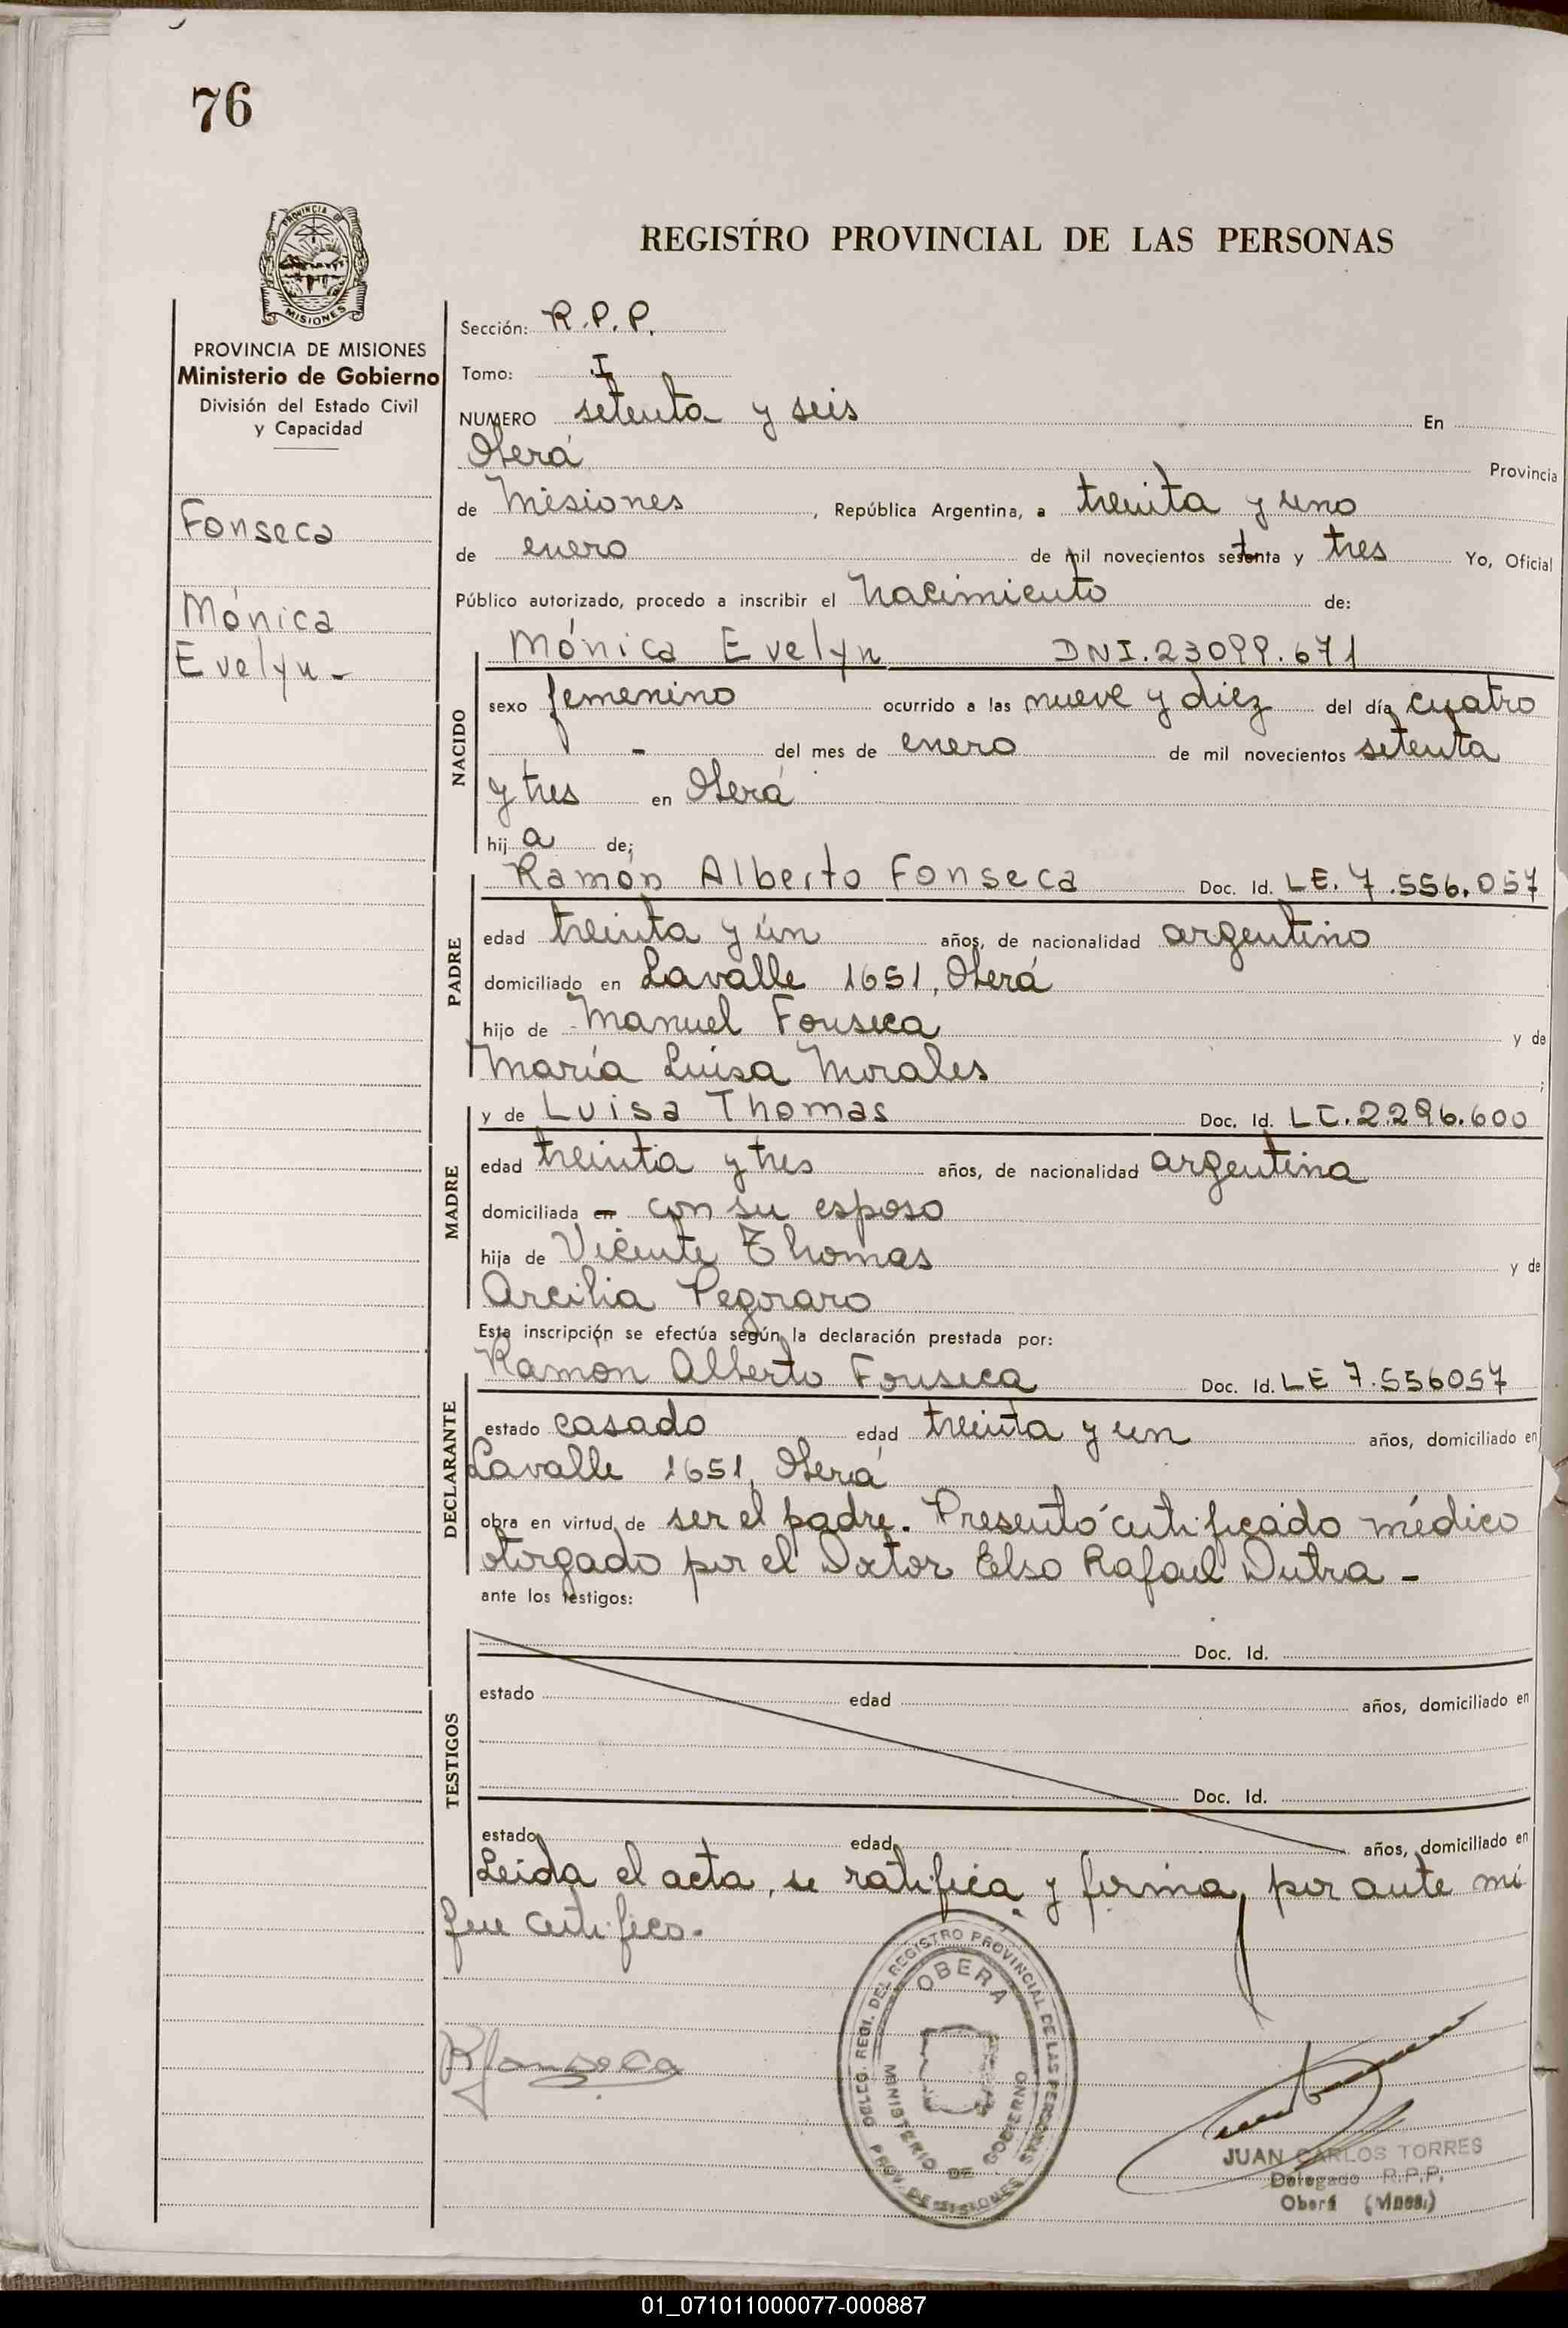 76
PROVINCIA DE
MISIONES
REGISTRO PROVINCIAL DE LAS PERSONAS
PROVINCIA DE MISIONES
Ministerio de Gobierno
División del Estado Civil
y Capacidad
Fonseca
Mónica
Evelyn -
Sección: R.P.P.
Tomo: I
NUMERO setenta y seis En
Oberá Provincia
de Misiones, República Argentina, a treinta y uno
de enero de mil novecientos setenta y tres Yo, Oficial
Público autorizado, procedo a inscribir el nacimiento de:
NACIDO
Mónica Evelyn DNI.23099.671
sexo femenino ocurrido a las nueve y diez del día cuatro
- del mes de enero de mil novecientos setenta
y tres en Oberá
hij a de;
PADRE
Ramón Alberto Fonseca Doc. Id. LE. 7.556.057
edad treinta y ún años, de nacionalidad argentino
domiciliado en Lavalle 1651, Oberá
hijo de Manuel Fonseca y de
María Luisa Morales ;
MADRE
y de Luisa Thomas Doc. Id. LC.2.296.600
edad treinta y tres años, de nacionalidad argentina
domiciliada en con su esposo
hija de Vicente Thomas y de
Arcilia Pegoraro
Esta inscripción se efectúa según la declaración prestada por:
DECLARANTE
Ramon Alberto Fonseca Doc. Id. LE 7.556057
estado casado edad treinta y un años, domiciliado en
Lavalle 1651, Oberá
obra en virtud de ser el padre. Presentó certificado médico
otorgado por el Doctor Elso Rafael Dutra -
ante los testigos:
TESTIGOS
Doc. Id.
estado edad años, domiciliado en
Doc. Id.
estado edad años, domiciliado en
Leída el acta, se ratifica y firma, por ante mí
que certifico.
RFonseca
DELEG. REGI. DEL REGISTRO PROVINCIAL DE LAS PERSONAS
OBERA
MINISTERIO DE GOBIERNO
PROV. DE MISIONES
JUAN CARLOS TORRES
Delegado R.P.P.
Oberá (Mnes.)
01_071011000077-000887